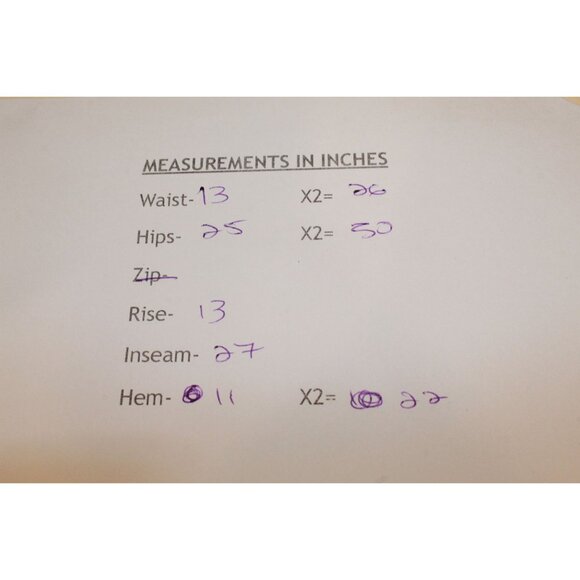 MEASUREMENTS IN INCHES
Waist- 13 X2= 26
Hips- 25 X2= 50
Zip-
Rise- 13
Inseam- 27
Hem- 11 X2= 22